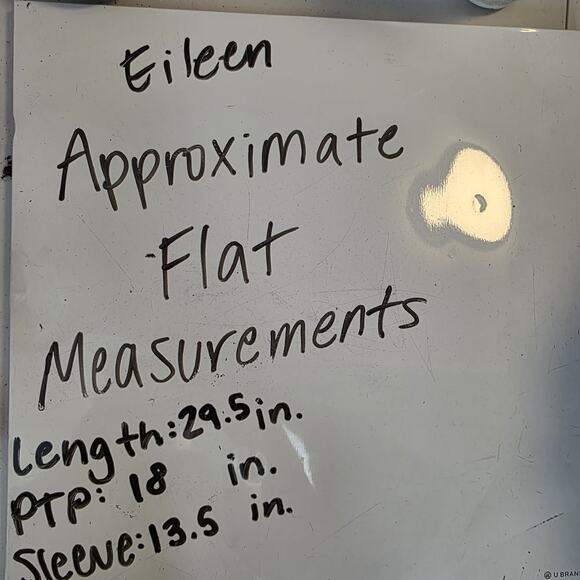 Eileen
Approximate
Flat
Measurements
Length: 29.5 in.
PTP: 18 in.
Sleeve: 13.5 in.
U BRAN